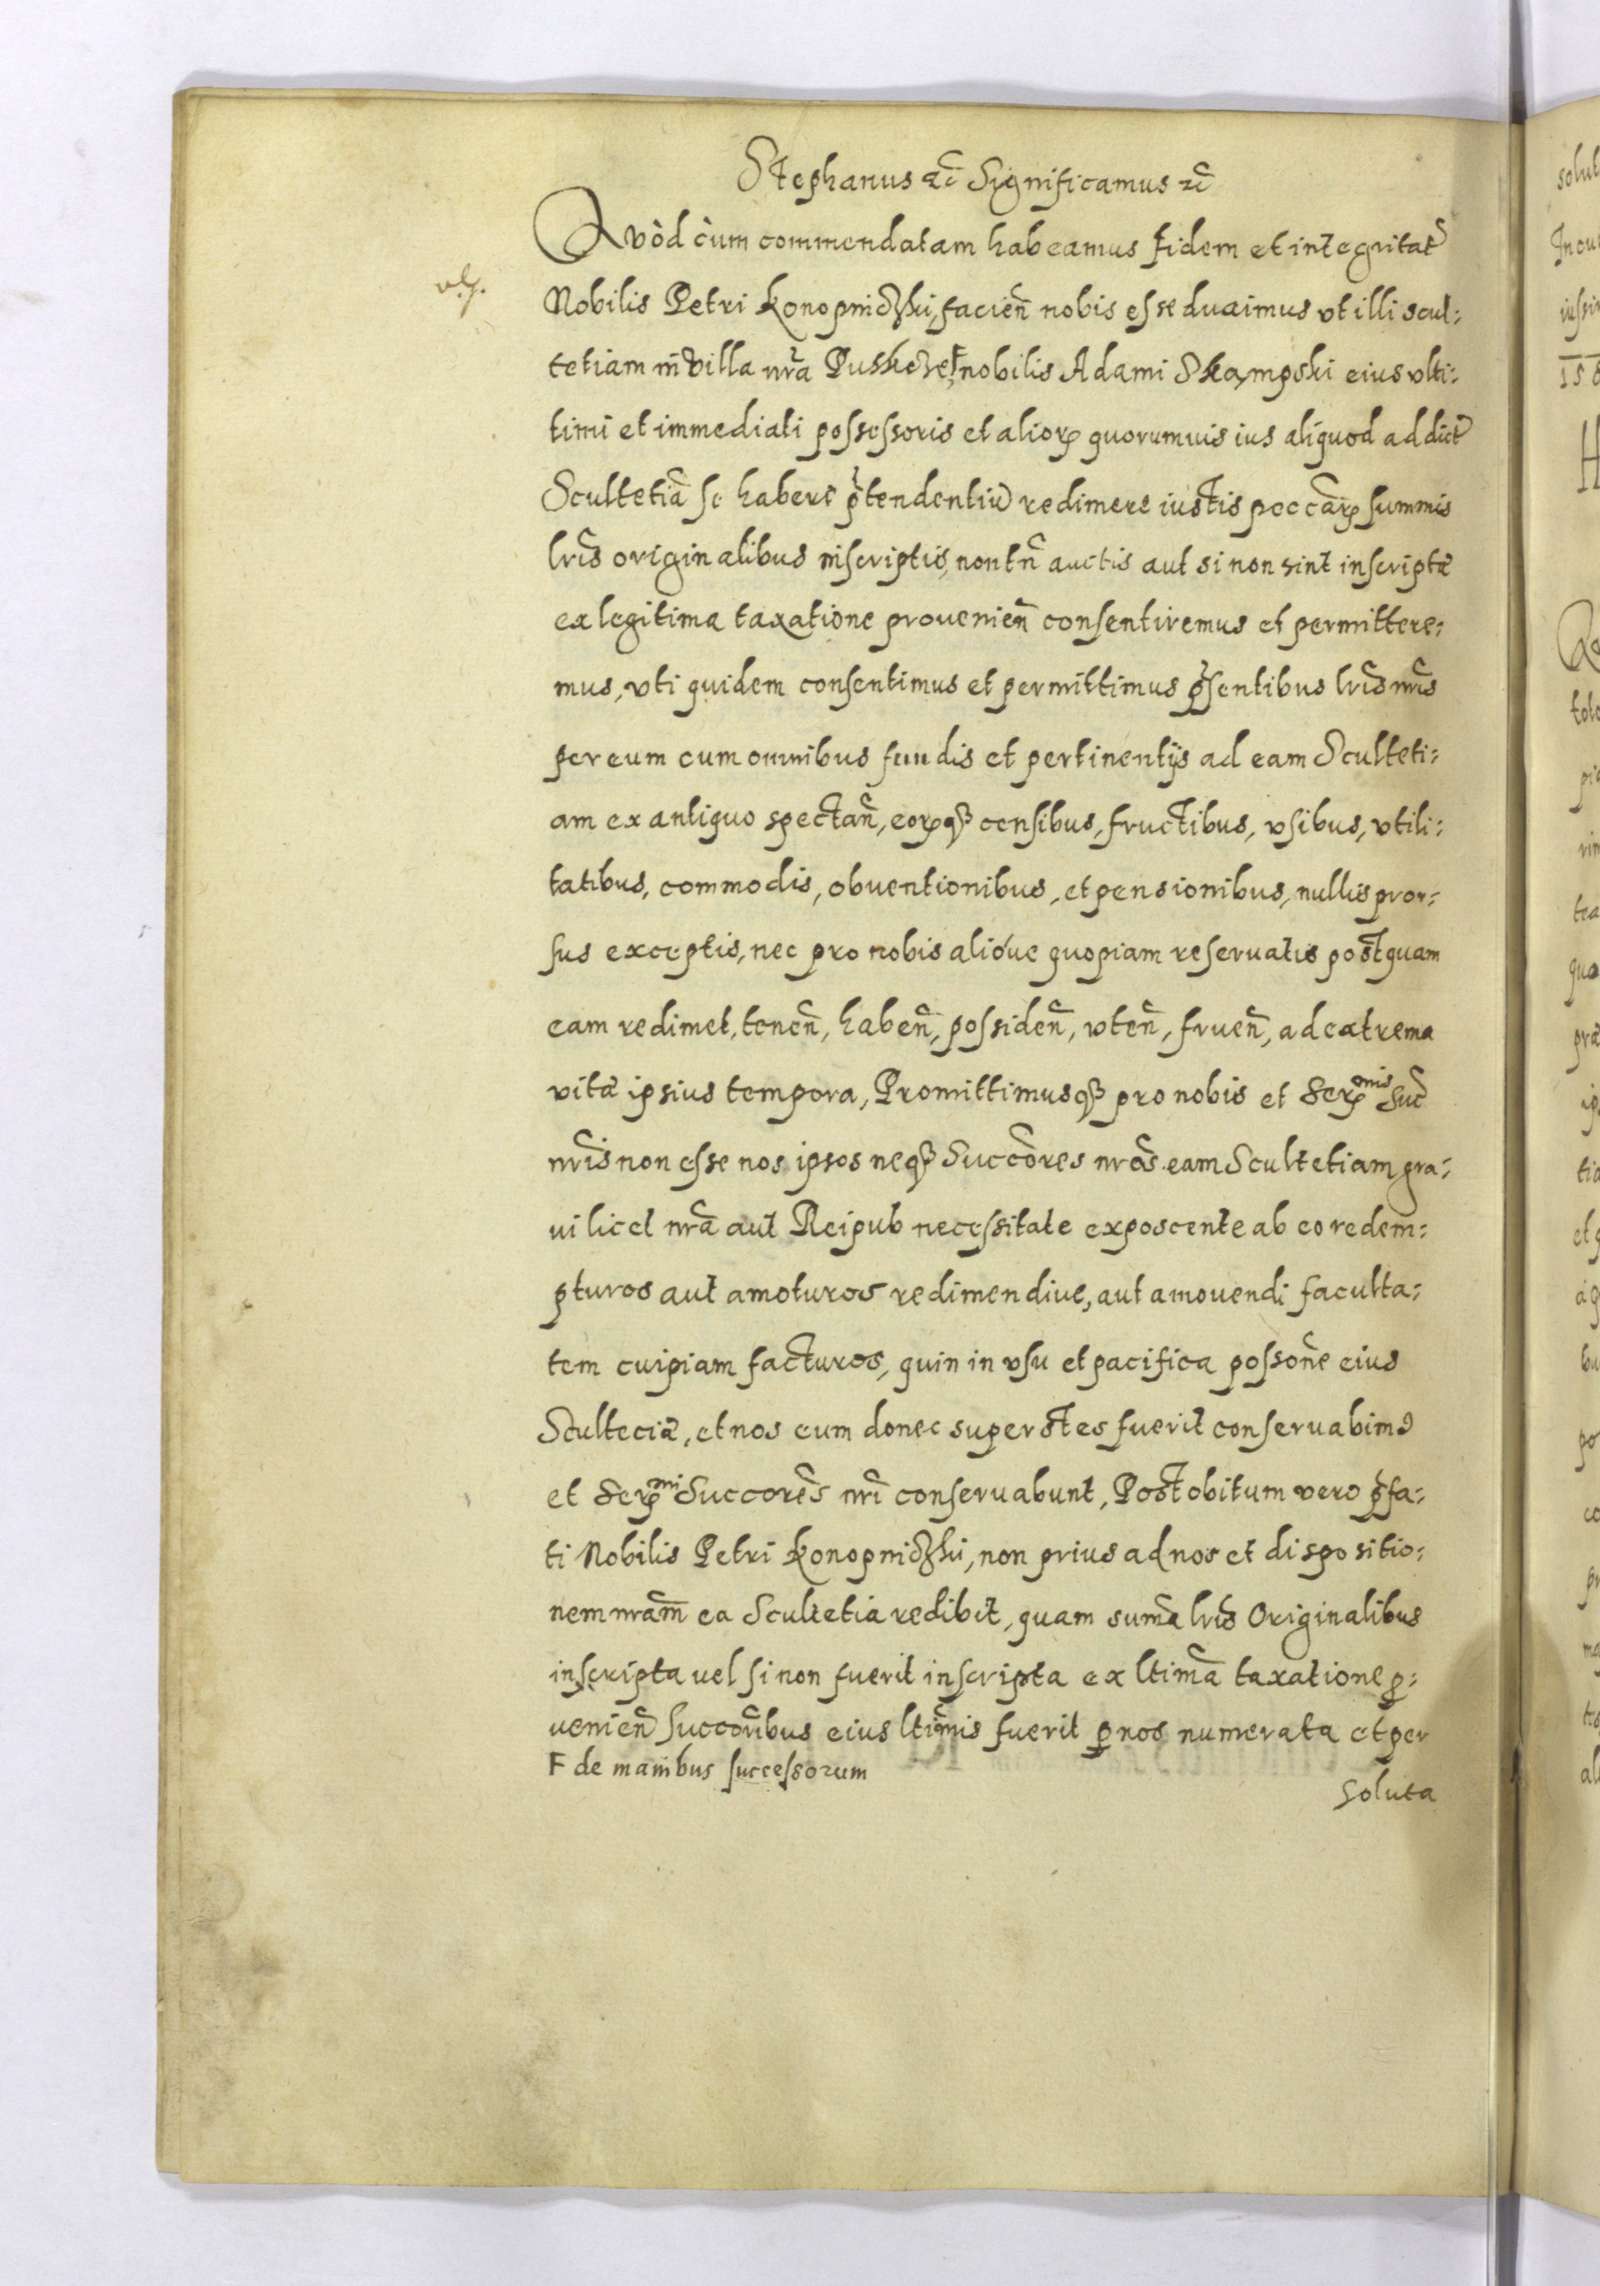 Stephanus &c̃ Significamus &c̃
Qvòd cùm commendatam habeamus fidem et integritat̃
Nobilis Petri Konopniczki, facien̄ nobis esse duximus vt illi scul:
tetiam in villa nr̃a Puskowe, F nobilis Adami Skąmpski eius vlti:
timi et immediati possessoris et alior̨ quorumuis ius aliquod ad dict̃
Scultetiã se habere p̃tendentiũ redimere iustis peccar̨ summis
lr̃is originalibus inscriptis, non tn̄ auctis aut si non sint inscriptæ
ex legitima taxatione prouenien̄ consentiremus et permittere:
mus, vti quidem consentimus et permittimus p̃sentibus lr̃is nr̃is
per eum cum omnibus fundis et pertinentijs ad eam Sculteti:
am ex antiquo spectan̄, eor̨q₃ censibus, fructibus, vsibus, vtili:
tatibus, commodis, obuentionibus, et pensionibus, nullis pror:
sus exceptis, nec pro nobis alióue quopiam reseruatis postquam
eam redimet, tenen̄, haben̄, possiden̄, vten̄, fruen̄, ad extrema
vitæ ipsius tempora, Promittimusq₃ pro nobis et Ser̨mis Suc̃
nr̃is non esse nos ipsos neq₃ Succõres nr̃os eam Scultetiam gra:
ui licet nr̃a aut Reipub necessitate exposcente ab eo redem:
pturos aut amoturos redimendiue, aut amouendi faculta:
tem cuipiam facturos, quin in vsu et pacifica possõne eius
Scultecia͂, et nos eum donec superstes fuerit conseruabimꝰ
et Ser̨mi Succorẽs nr̃i conseruabunt, Post obitum vero p̃fa:
ti Nobilis Petri Konopniczki, non prius ad nos et dispositio:
nem nr̃am ea Scultetia redibit, quam sum̄a lr̃is Originalibus
inscripta uel si non fuerit inscripta ex ltima͂ taxatione p̱:
uenien̄ succorĩbus eius ltimis fuerit p̱ nos numerata et per
F de manibus successorum
soluta